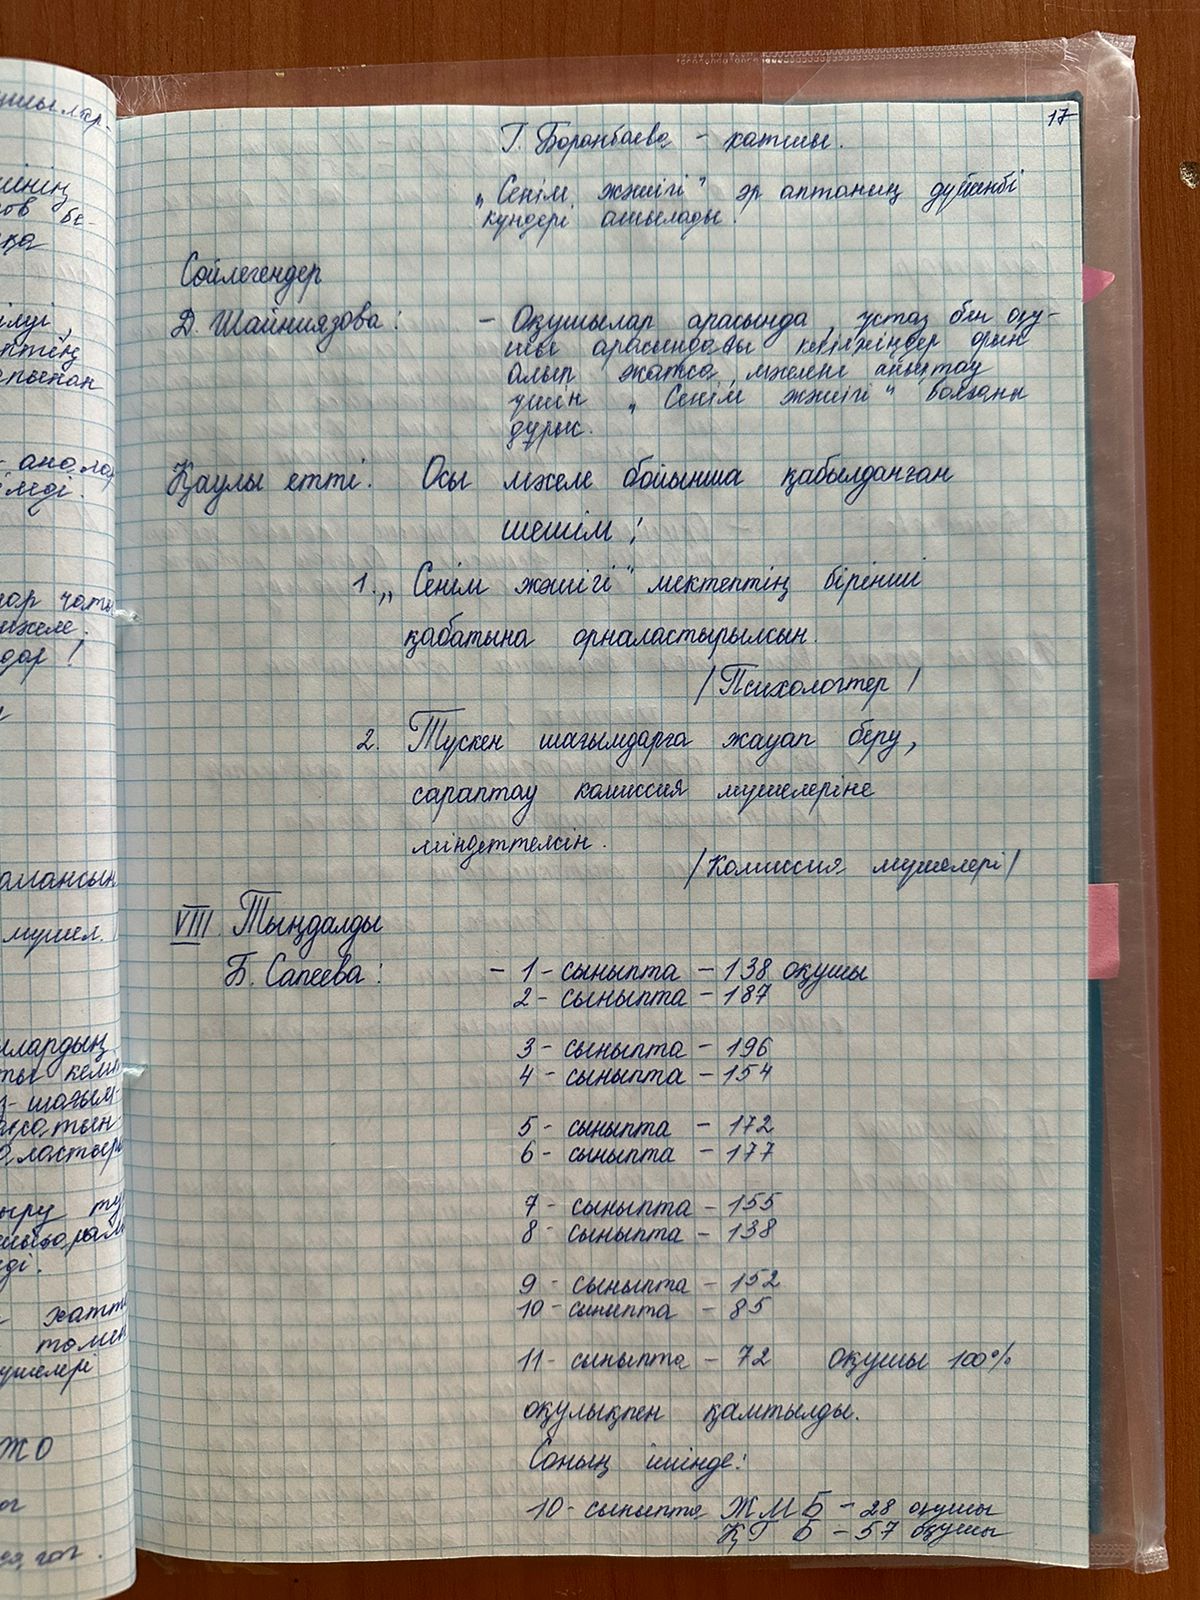 17
Г. Боранбаева – хатшы.
„Сенім жәшігі" әр аптаның дүйсенбі
күндері ашылады.
Сөйлегендер
Д. Шайниязова: – Оқушылар арасында, ұстаз бен оқу-
шы арасындағы келіспеушілер орын
алып жатса, мәселені айықтау
үшін „Сенім жәшігі" болғаны
дұрыс.
Қаулы етті. Осы мәселе бойынша қабылданған
шешім:
1. „Сенім жәшігі" мектептің бірінші
қабатына орналастырылсын.
/Психологтер/
2. Түскен шағымдарға жауап беру,
сараптау комиссия мүшелеріне
міндеттелсін.
/Комиссия мүшелері/
VIII. Тыңдалды
Б. Сапеева: – 1 - сыныпта – 138 оқушы
2 - сыныпта – 187
3 - сыныпта – 196
4 - сыныпта – 154
5 - сыныпта – 172
6 - сыныпта – 177
7 - сыныпта – 155
8 - сыныпта – 138
9 - сыныпта – 152
10 - сыныпта – 85
11 - сыныпта – 72 оқушы 100%
оқулықпен қамтылды.
Соның ішінде:
10 - сыныпта ЖМБ – 28 оқушы
ҚГБ – 57 оқушы